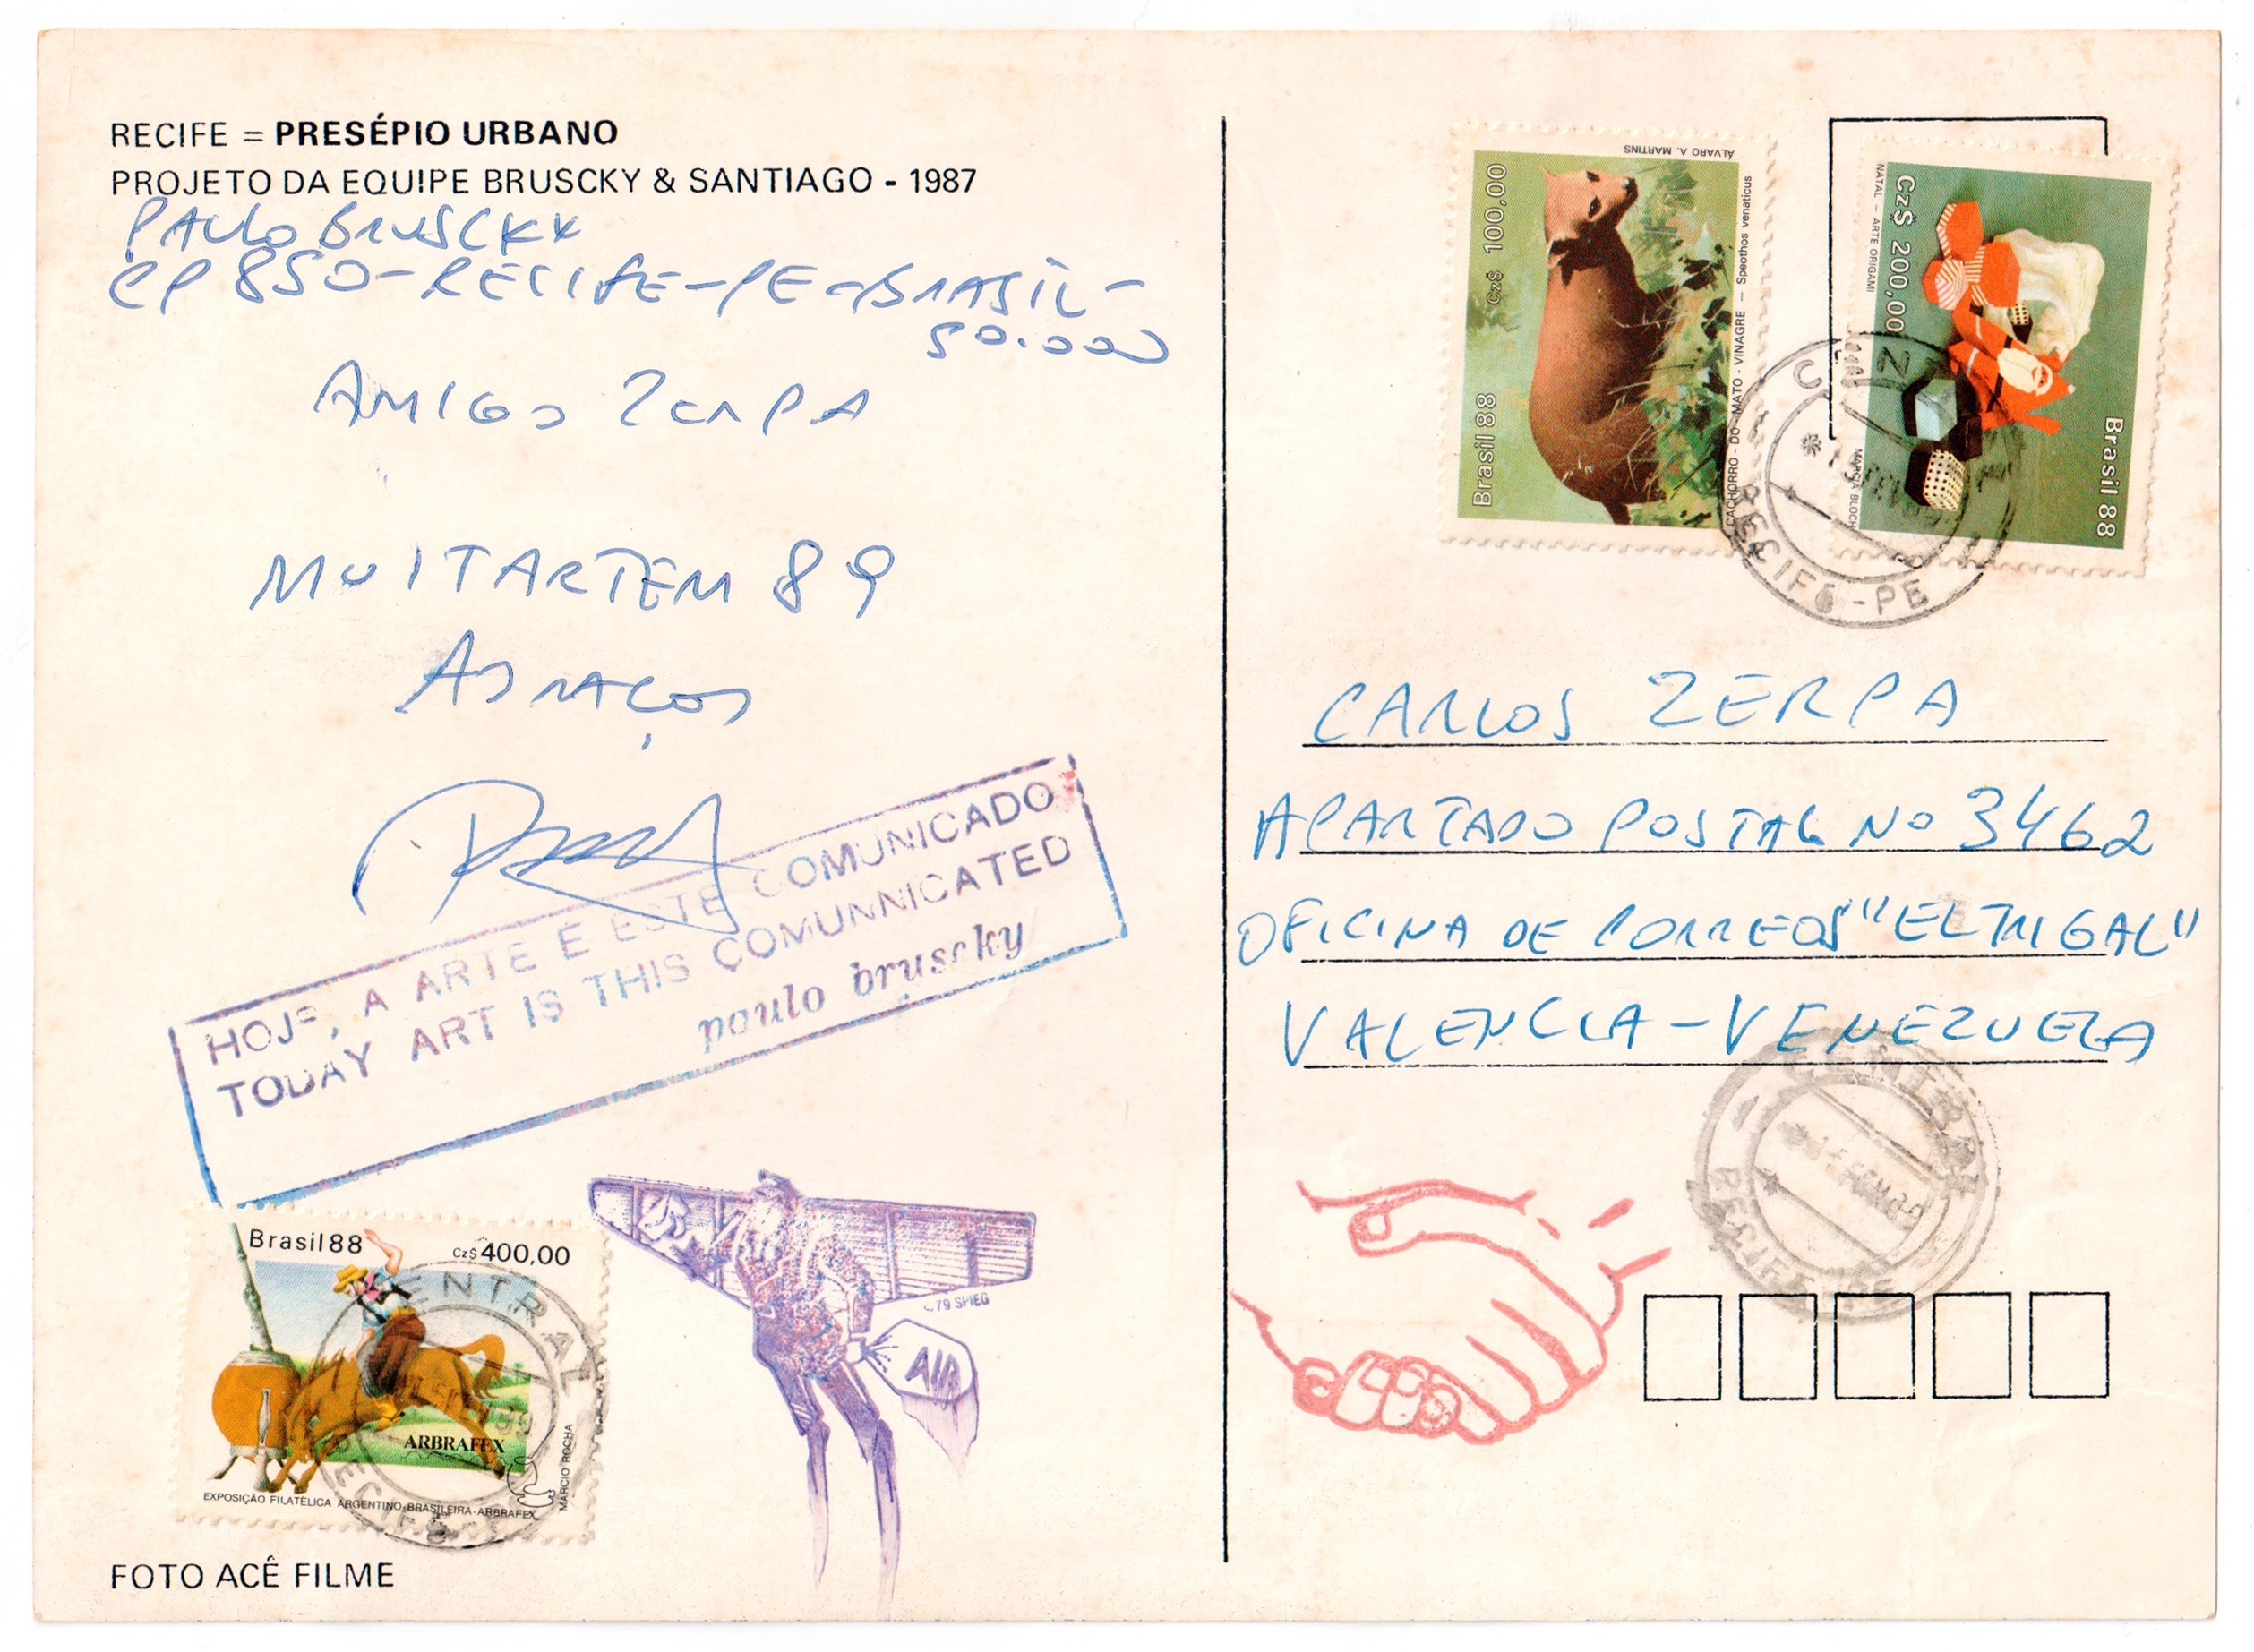 RECIFE = PRESÉPIO URBANO
PROJETO DA EQUIPE BRUSCKY & SANTIAGO - 1987
PAULO BRUSCKY
CP 850 - RECIFE - PE - BRASIL -
50.000
AMIGO ZERPA
MUITARTEM 89
ABRAÇOS
HOJE, A ARTE É ESTE COMUNICADO
TODAY ART IS THIS COMUNNICATED
paulo bruscky
Brasil 88
Cz$ 400,00
ARBRAFEX
MARCIO ROCHA
EXPOSIÇÃO FILATÉLICA ARGENTINO-BRASILEIRA-ARBRAFEX
CENTRAL
79 SPIEG
AIR
FOTO ACÊ FILME
ÁLVARO A. MARTINS
Cz$ 100,00
Brasil 88
CACHORRO - DO - MATO - VINAGRE - Speothos venaticus
NATAL - ARTE ORIGAMI
Cz$ 200,00
MARCIA BLOCH
Brasil 88
RECIFE - PE
CARLOS ZERPA
APARTADO POSTAL No 3462
OFICINA DE CORREOS "EL TRIGAL"
VALENCIA - VENEZUELA
CENTRAL
RECIFE - PE